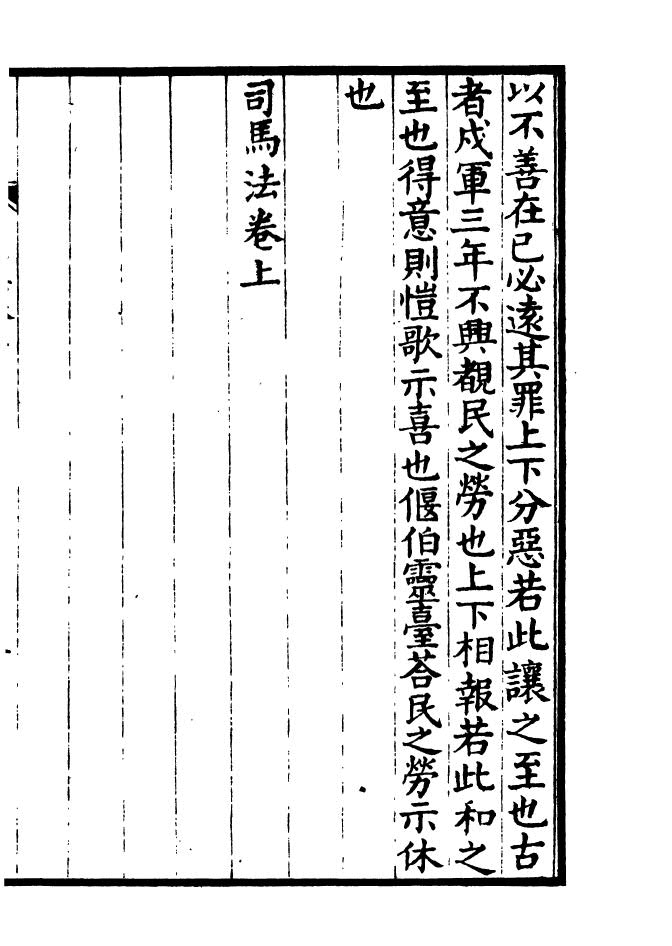 以不善在已必逺其罪上下分惡若此讓之至也古
者戍軍三年不興覩民之勞也上下相報若此和之
至也得意則愷歌示喜也偃伯靈臺荅民之勞示休
也
司馬法卷上